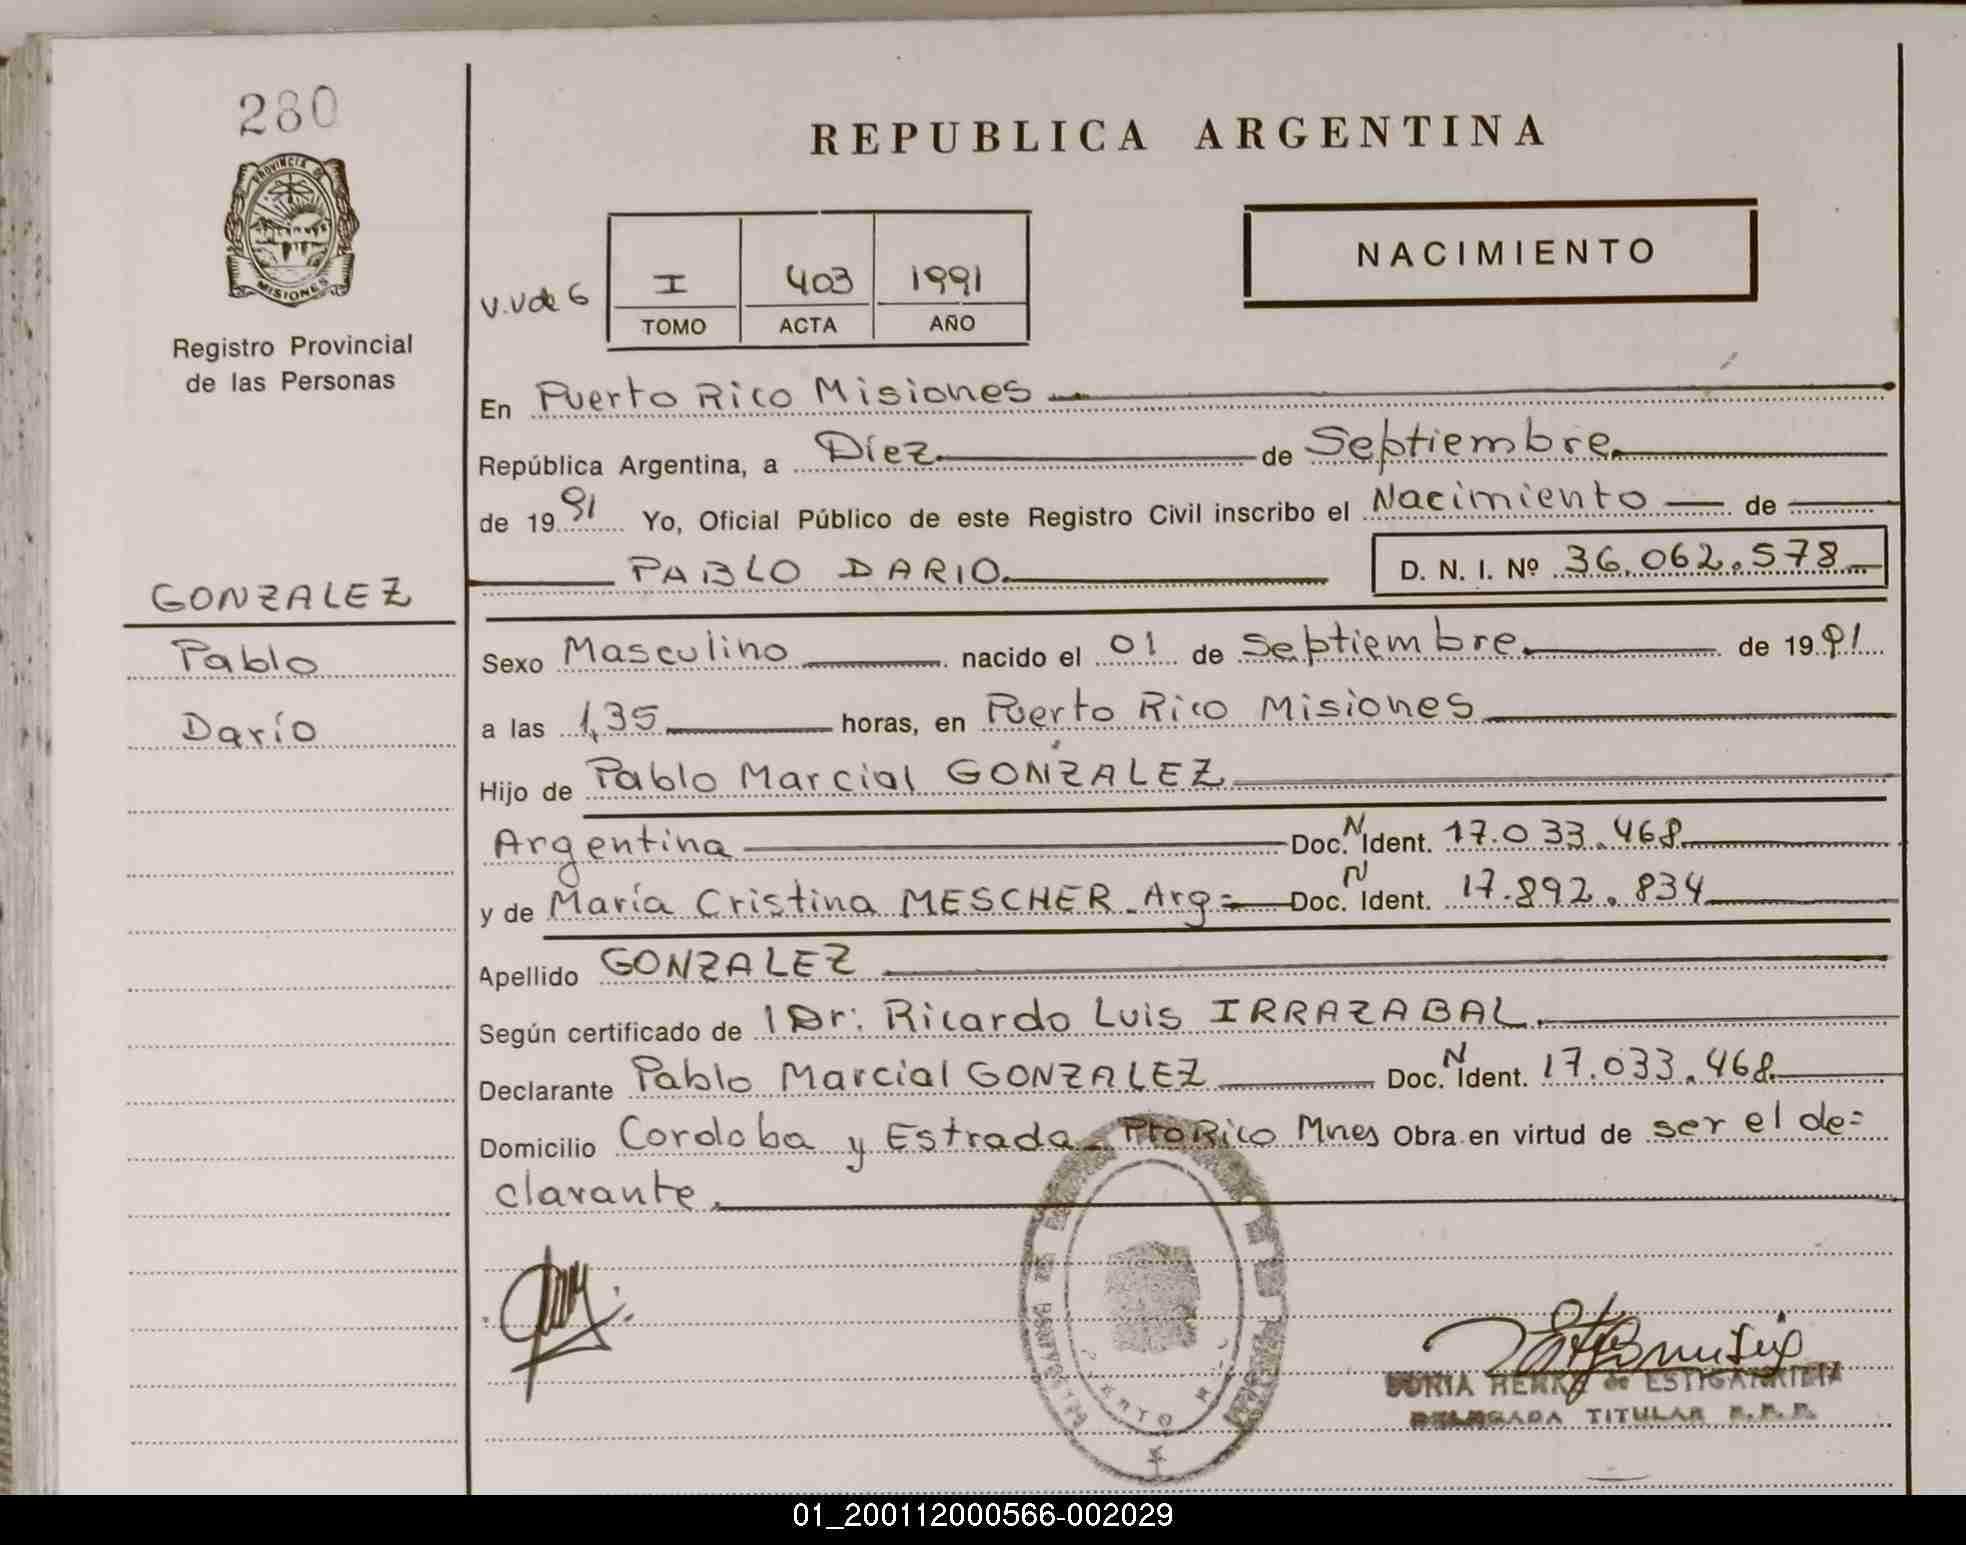 280
PROVINCIA DE
MISIONES
Registro Provincial
de las Personas
GONZALEZ
Pablo
Darío
REPUBLICA ARGENTINA
NACIMIENTO
V.V de 6
I 403 1991
TOMO ACTA AÑO
En Puerto Rico Misiones
República Argentina, a Díez de Septiembre
de 1991 Yo, Oficial Público de este Registro Civil inscribo el Nacimiento de
PABLO DARIO D. N. I. Nº 36.062.578
Sexo Masculino nacido el 01 de Septiembre de 1991
a las 1,35 horas, en Puerto Rico Misiones
Hijo de Pablo Marcial GONZALEZ
Argentina Doc. N Ident. 17.033.468
y de María Cristina MESCHER Arg= Doc. N Ident. 17.892.834
Apellido GONZALEZ
Según certificado de Dr: Ricardo Luis IRRAZABAL
Declarante Pablo Marcial GONZALEZ Doc. N Ident. 17.033.468
Domicilio Cordoba y Estrada Pto Rico Mnes Obra en virtud de ser el de=
clarante
de ESTIGARRIBIA
DELEGADA TITULAR R.P.P.
01_200112000566-002029